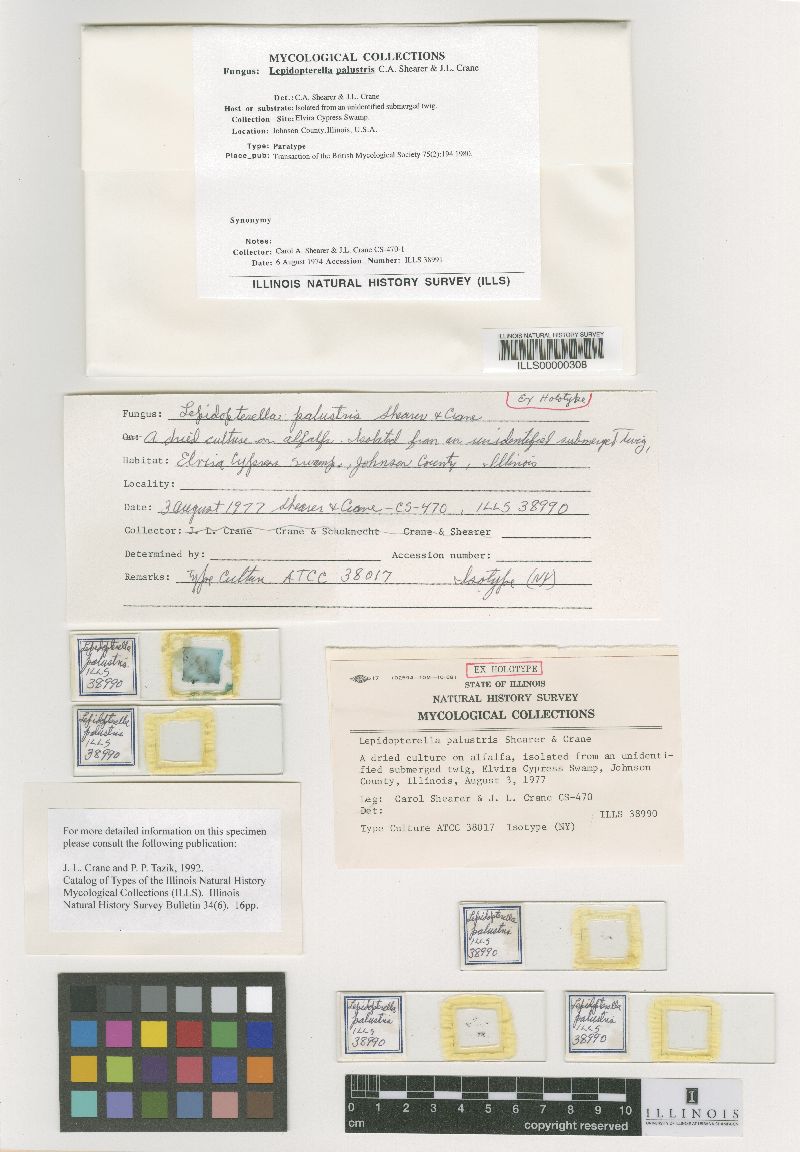 MYCOLOGICAL COLLECTIONS
Fungus: Lepidopterella palustris C.A. Shearer & J.L. Crane
Det.: C.A. Shearer & J.L. Crane
Host or substrate: Isolated from an unidentified submerged twig.
Collection Site: Elvira Cypress Swamp.
Location: Johnson County, Illinois, U.S.A.
Type: Paratype
Place_pub: Transaction of the British Mycological Society 75(2):194 1980.
Synonymy
Notes:
Collector: Carol A. Shearer & J.L. Crane CS-470-1
Date: 6 August 1974 Accession Number: ILLS 38991
ILLINOIS NATURAL HISTORY SURVEY (ILLS)
ILLINOIS NATURAL HISTORY SURVEY
ILLS00000308
Ex Holotype
Fungus: Lepidopterella palustris Shearer & Crane
A dried culture on alfalfa. Isolated from an unidentified submerged twig,
Habitat: Elvira Cypress Swamp, Johnson County, Illinois
Locality:
Date: 3 August 1977 Shearer & Crane - CS-470, ILLS 38990
Collector: J. L. Crane Crane & Schoknecht Crane & Shearer
Determined by: Accession number:
Remarks: Type Culture ATCC 38017 Isotype (NY)
Lepidopterella
palustris
ILLS
38990
Lepidopterella
palustris
ILLS
38990
EX HOLOTYPE
STATE OF ILLINOIS
NATURAL HISTORY SURVEY
MYCOLOGICAL COLLECTIONS
Lepidopterella palustris Shearer & Crane
A dried culture on alfalfa, isolated from an unidenti-
fied submerged twig, Elvira Cypress Swamp, Johnson
County, Illinois, August 3, 1977
Leg: Carol Shearer & J. L. Crane CS-470
Det: ILLS 38990
Type Culture ATCC 38017 Isotype (NY)
For more detailed information on this specimen
please consult the following publication:
J. L. Crane and P. P. Tazik, 1992.
Catalog of Types of the Illinois Natural History
Mycological Collections (ILLS). Illinois
Natural History Survey Bulletin 34(6). 16pp.
Lepidopterella
palustris
ILLS
38990
Lepidopterella
palustris
ILLS
38990
Lepidopterella
palustris
ILLS
38990
0 1 2 3 4 5 6 7 8 9 10
cm
copyright reserved
I
ILLINOIS
UNIVERSITY OF ILLINOIS AT URBANA-CHAMPAIGN